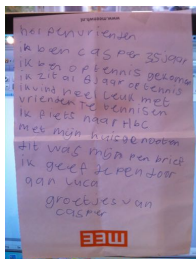 hei penvrienden
ik ben casper 35 jaar
ik ben op tennis gekomen
ik zit al 8 jaar op tennis
ik vind heel leuk met
vrienden te tennissen
ik fiets naar HBC
met mijn huisgenoten
dit was mijn pen brief
ik geef je pen door
aan Luca
groetjes van
casper
MEE